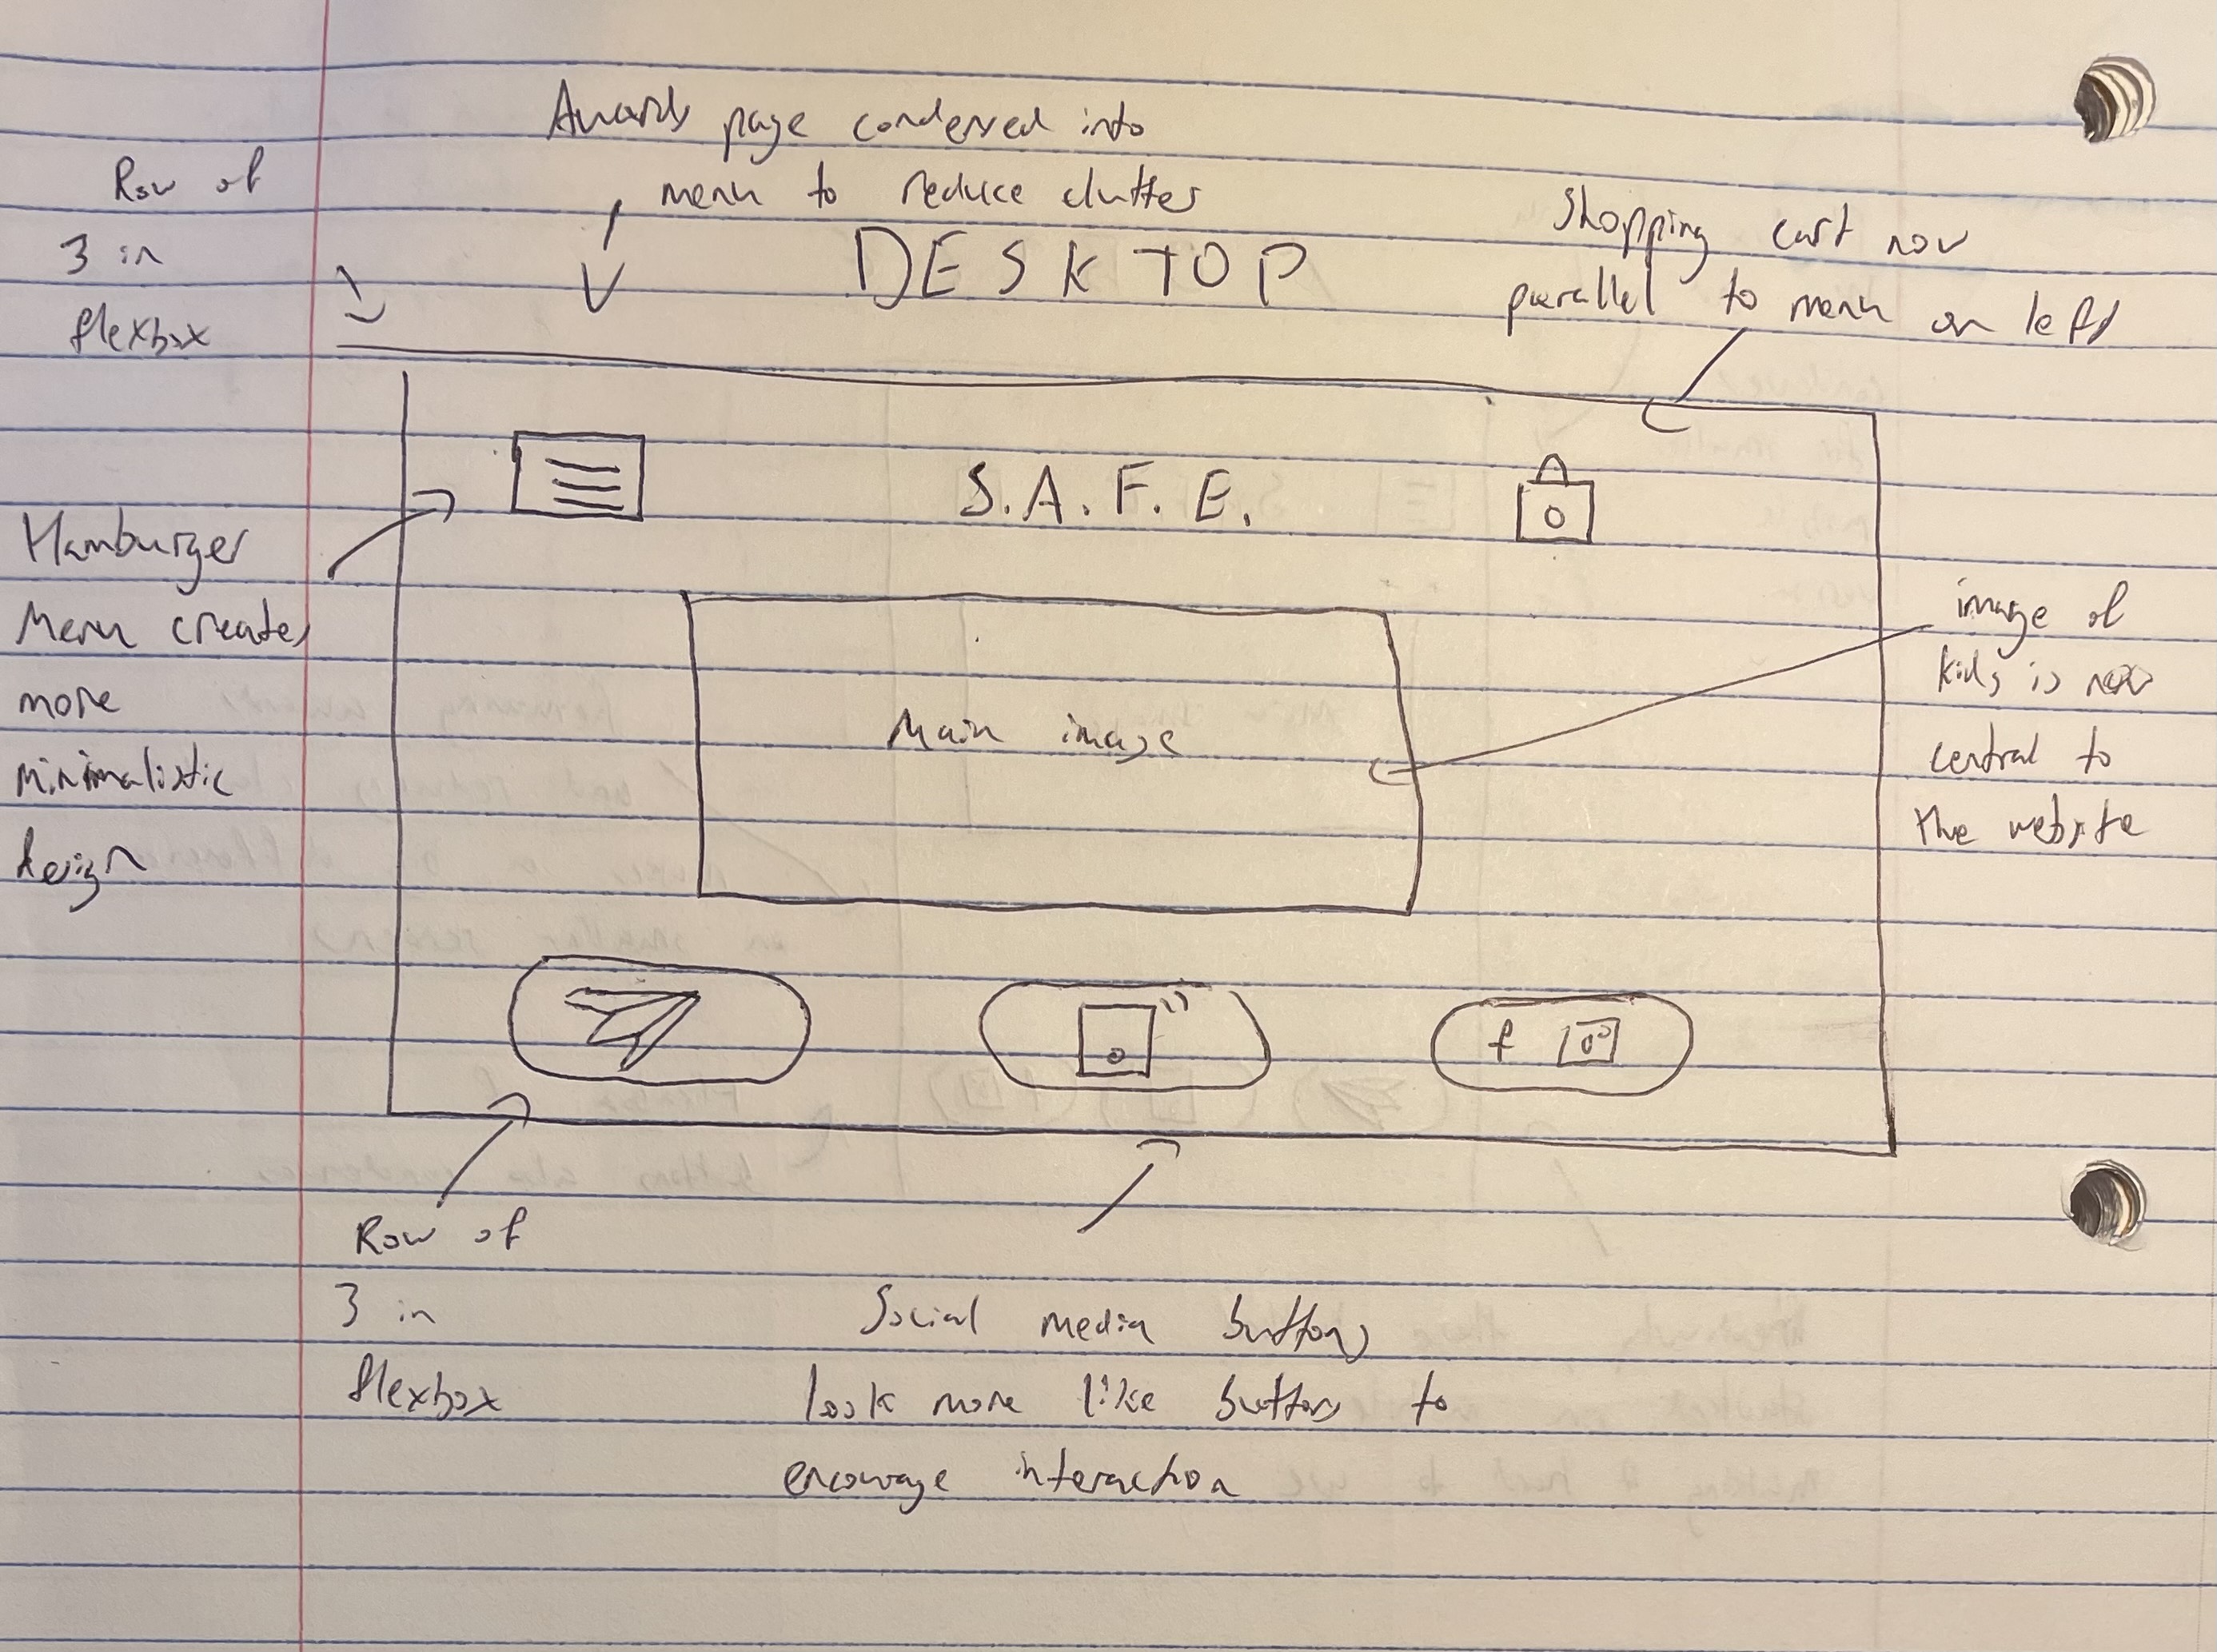 Awards page condensed into
menu to reduce clutter
Row of
3 in
flexbox
DESKTOP
Shopping cart now
parallel to menu on left
S.A.F.E.
Hamburger
Menu creates
more
minimalistic
design
Main image
image of
kids is now
central to
the website
f
Row of
3 in
flexbox
Social media buttons
look more like buttons to
encourage interaction